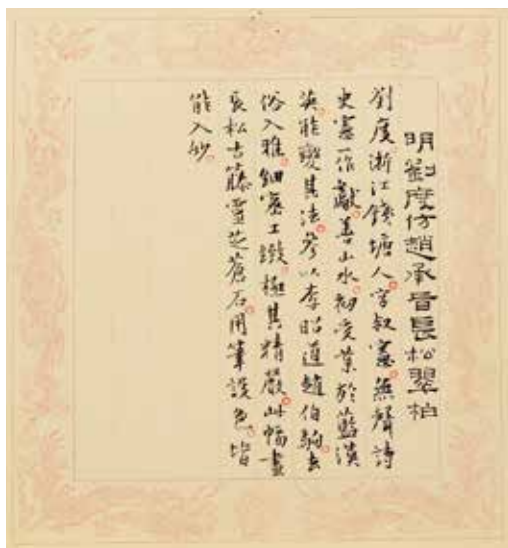 明劉度仿趙承旨長松翠柏
劉度浙江錢塘人。字叔憲。無聲詩
史憲一作獻。善山水。初受業於藍瑛
瑛能變其法。參以李昭道趙伯駒。去
俗入雅。細密工緻。極其精嚴。此幅畫
長松古藤靈芝蒼石。用筆設色。皆
能入妙。